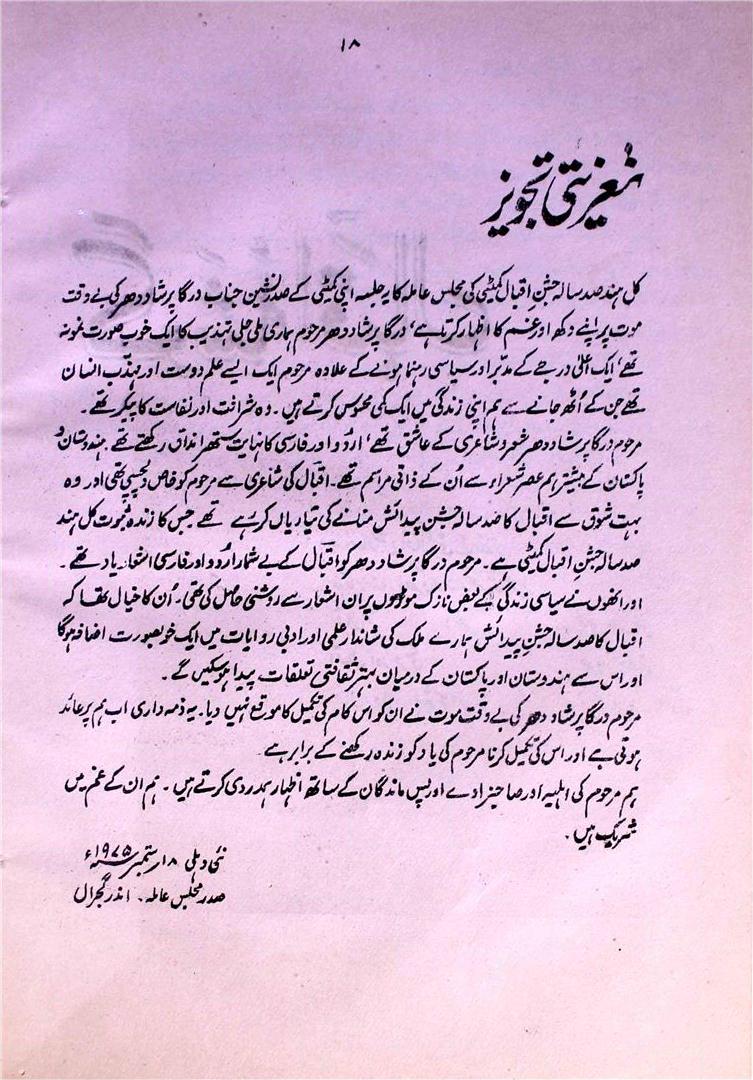 ۱۸
تعزیتی تجویز
کل ہند صد سالہ جشنِ اقبال کمیٹی کی مجلس عاملہ کا یہ جلسہ اپنی کمیٹی کے صدر نشین جناب درگا پرشاد دھر کی بے وقت
موت پر اپنے دکھ اور غم کا اظہار کرتا ہے، درگا پرشاد دھر مرحوم ہماری ملی جلی تہذیب کا ایک خوب صورت نمونہ
تھے، ایک اعلیٰ درجے کے مدبّر اور سیاسی رہنما ہونے کے علاوہ مرحوم ایک ایسے علم دوست اور مہذّب انسان
تھے جن کے اُٹھ جانے سے ہم اپنی زندگی میں ایک کمی محسوس کرتے ہیں۔ وہ شرافت اور نفاست کا پیکر تھے۔
مرحوم درگا پرشاد دھر شعر و شاعری کے عاشق تھے، اردو اور فارسی کا نہایت ستھرا مذاق رکھتے تھے ہندوستان و
پاکستان کے بیشتر ہم عصر شعراء سے اُن کے ذاتی مراسم تھے۔ اقبال کی شاعری سے مرحوم کو خاص دلچسپی تھی اور وہ
بہت شوق سے اقبال کا صد سالہ جشن پیدائش منانے کی تیاریاں کر رہے تھے جس کا زندہ ثبوت کل ہند
صد سالہ جشنِ اقبال کمیٹی ہے۔ مرحوم درگا پرشاد دھر کو اقبال کے بے شمار اردو اور فارسی اشعار یاد تھے۔
اور انھوں نے سیاسی زندگی کے بعض نازک موقعوں پر ان اشعار سے روشنی حاصل کی تھی۔ اُن کا خیال تھا کہ
اقبال کا صد سالہ جشنِ پیدائش ہمارے ملک کی شاندار علمی اور ادبی روایات میں ایک خوبصورت اضافہ ہوگا
اور اس سے ہندوستان اور پاکستان کے درمیان بہتر ثقافتی تعلقات پیدا ہو سکیں گے۔
مرحوم درگا پرشاد دھر کی بے وقت موت نے ان کو اس کام کی تکمیل کا موقع نہیں دیا۔ یہ ذمہ داری اب ہم پر عائد
ہوتی ہے اور اس کی تکمیل کرنا مرحوم کی یاد کو زندہ رکھنے کے برابر ہے
ہم مرحوم کی اہلیہ اور صاحبزادے اور پس ماندگان کے ساتھ اظہار ہمدردی کرتے ہیں۔ ہم ان کے غم میں
شریک ہیں۔
نئی دہلی ۱۸ ستمبر ۱۹۷۵ء
صدر مجلس عاملہ۔ اندر گجرال